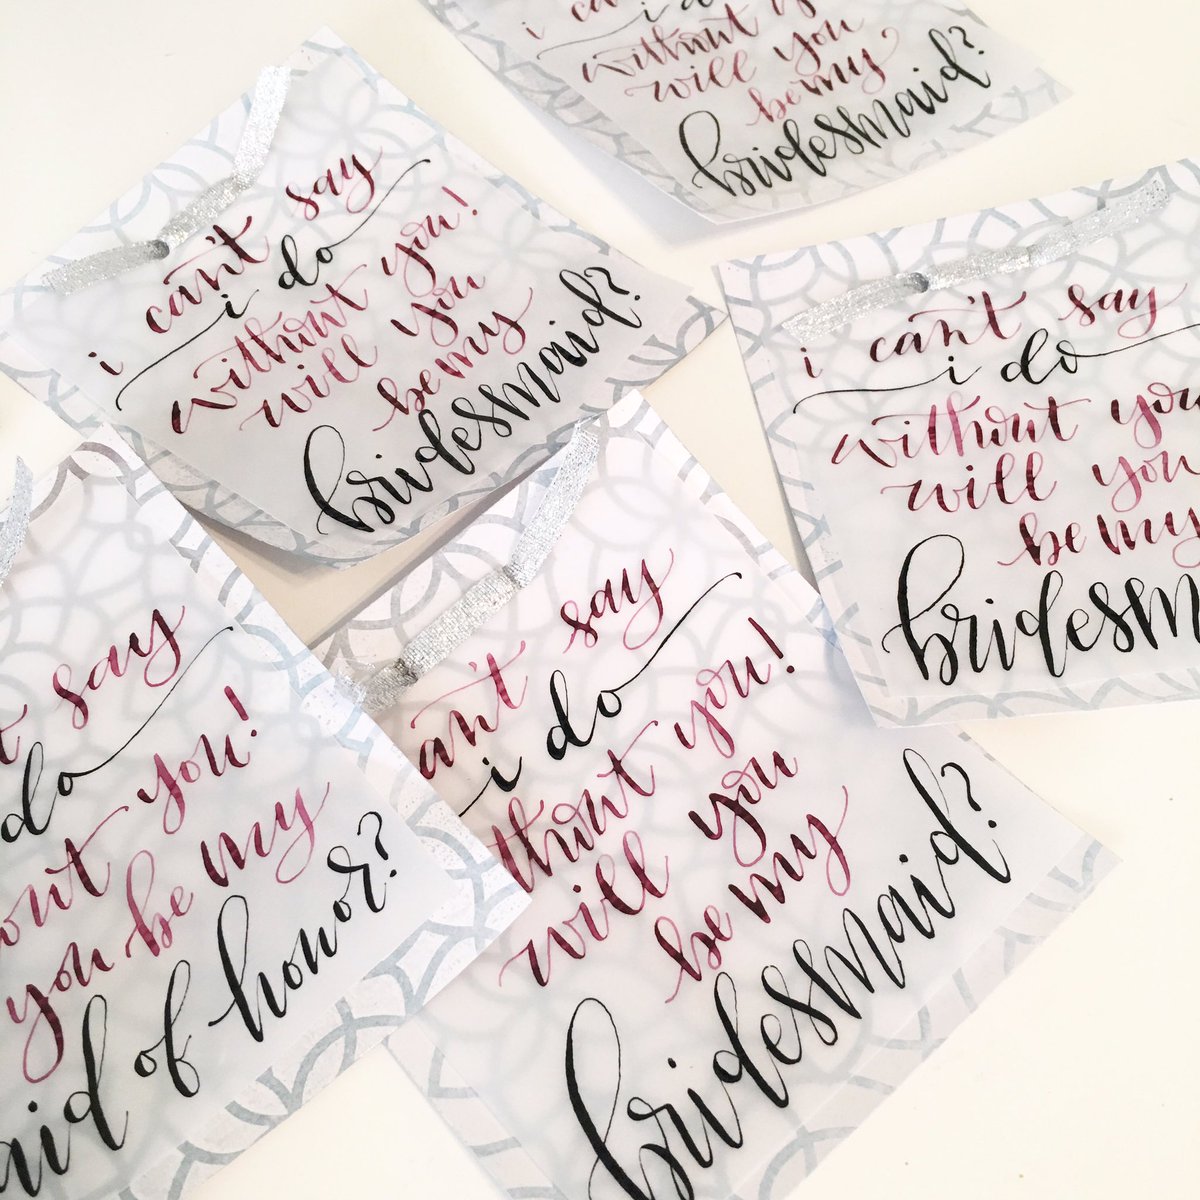 i can't say
i do
without you!
will you
be my
bridesmaid?
i can't say
i d
without y
will you
be my
bridesmaid?
i can't say
i do
without you
will you
be my
bridesm
t say
do
out you!
you be my
aid of honor?
an't say
i do
thout you!
will you
be my
bridesmaid?